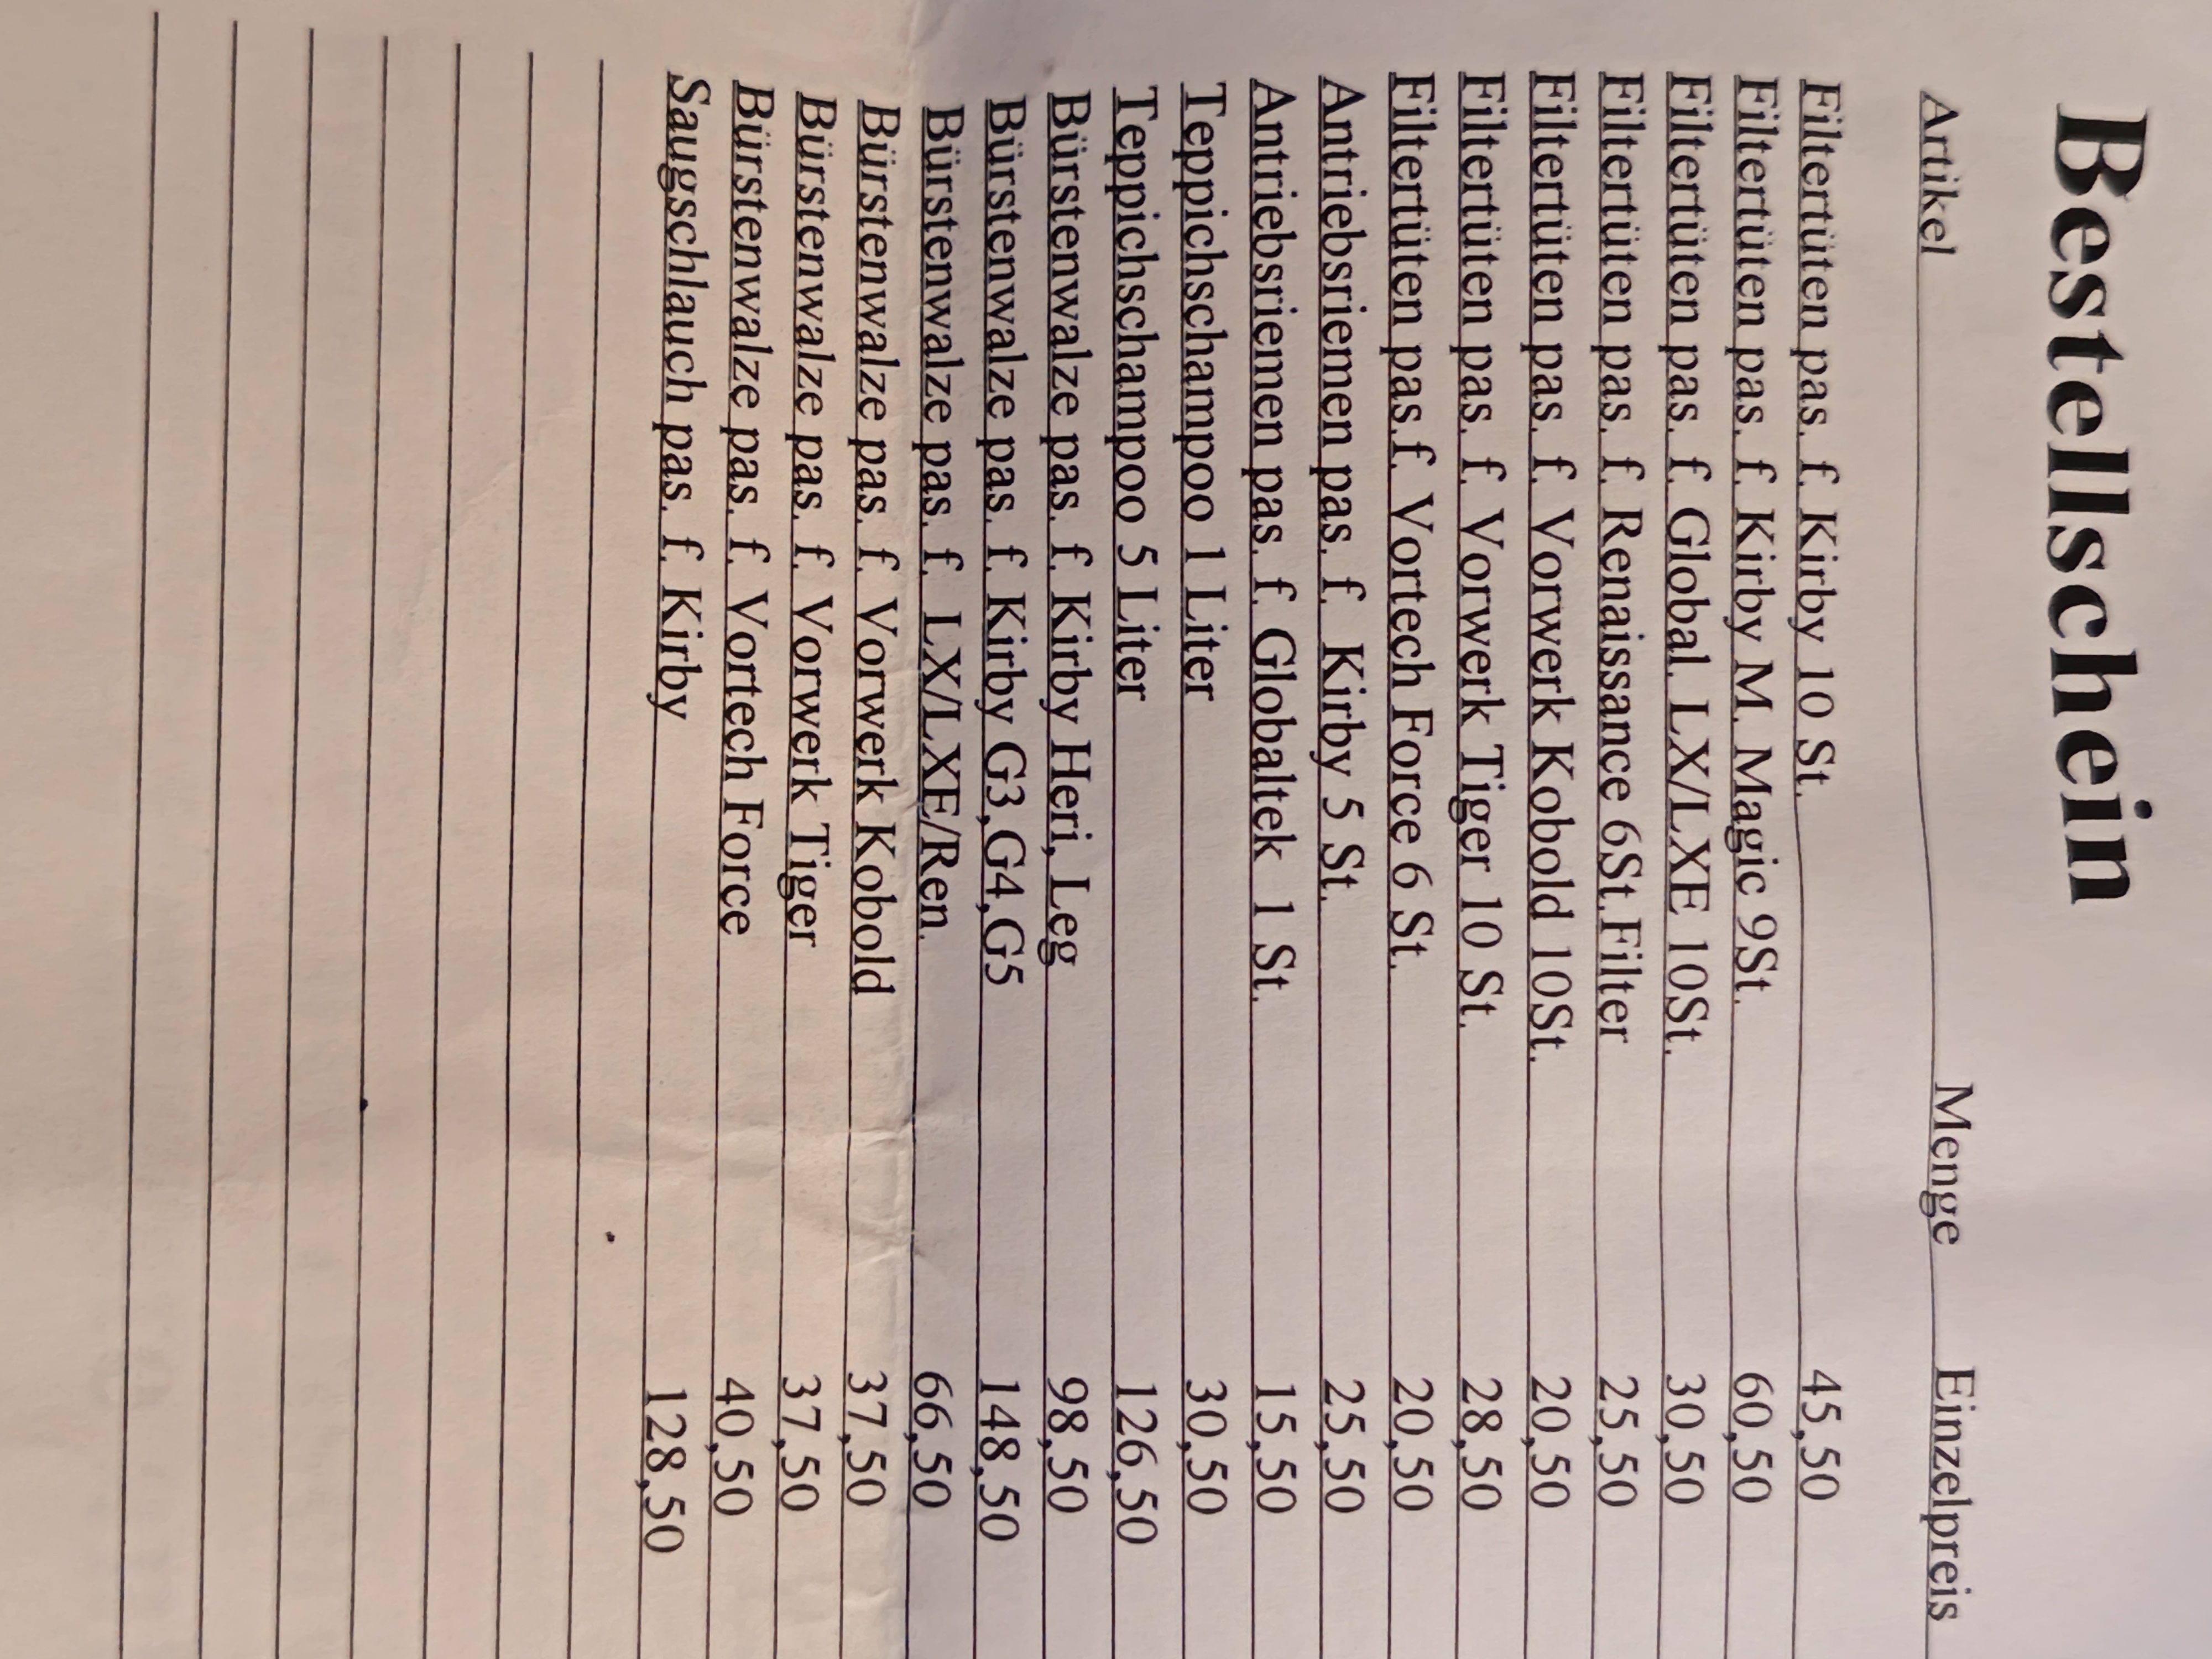 Bestellschein
Artikel Menge Einzelpreis
Filtertüten pas. f. Kirby 10 St. 45,50
Filtertüten pas. f. Kirby M. Magic 9St. 60,50
Filtertüten pas. f. Global. LX/LXE 10St. 30,50
Filtertüten pas. f. Renaissance 6St.Filter 25,50
Filtertüten pas. f. Vorwerk Kobold 10St. 20,50
Filtertüten pas. f. Vorwerk Tiger 10 St. 28,50
Filtertüten pas.f. Vortech Force 6 St. 20,50
Antriebsriemen pas. f. Kirby 5 St. 25,50
Antriebsriemen pas. f. Globaltek 1 St. 15,50
Teppichschampoo 1 Liter 30,50
Teppichschampoo 5 Liter 126,50
Bürstenwalze pas. f. Kirby Heri, Leg 98,50
Bürstenwalze pas. f. Kirby G3,G4,G5 148,50
Bürstenwalze pas. f. LX/LXE/Ren. 66,50
Bürstenwalze pas. f. Vorwerk Kobold 37,50
Bürstenwalze pas. f. Vorwerk Tiger 37,50
Bürstenwalze pas. f. Vortech Force 40,50
Saugschlauch pas. f. Kirby 128,50